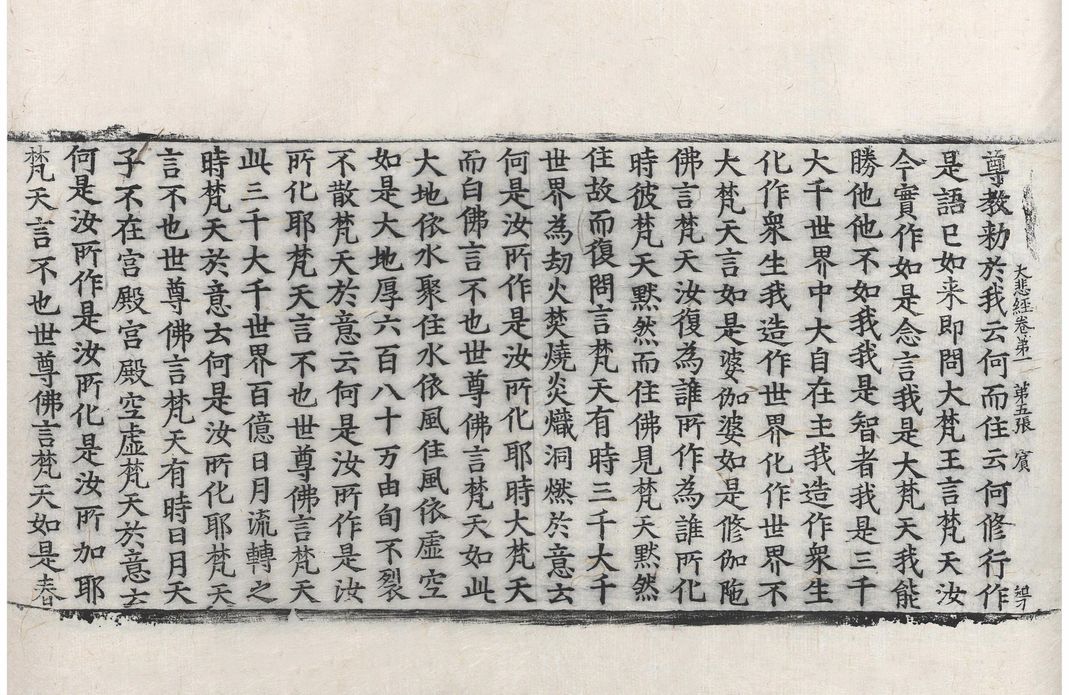 大悲經卷第一 第五張 賓
尊教勑於我云何而住云何修行作
是語已如来即問大梵王言梵天汝
今實作如是念言我是大梵天我能
勝他他不如我我是智者我是三千
大千世界中大自在主我造作衆生
化作衆生我造作世界化作世界不
大梵天言如是婆伽婆如是修伽陁
佛言梵天汝復為誰所作為誰所化
時彼梵天黙然而住佛見梵天黙然
住故而復問言梵天有時三千大千
世界為劫火焚燒炎熾洞燃於意云
何是汝所作是汝所化耶時大梵天
而白佛言不也世尊佛言梵天如此
大地依水聚住水依風住風依虛空
如是大地厚六百八十万由旬不裂
不散梵天於意云何是汝所作是汝
所化耶梵天言不也世尊佛言梵天
此三千大千世界百億日月流轉之
時梵天於意云何是汝所化耶梵天
言不也世尊佛言梵天有時日月天
子不在宮殿宮殿空虛梵天於意云
何是汝所作是汝所化是汝所加耶
梵天言不也世尊佛言梵天如是春